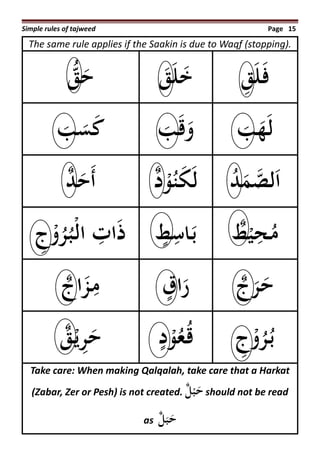 Simple rules of tajweed Page 15
The same rule applies if the Saakin is due to Waqf (stopping).
فَلَقٍ خَلَقَ حَقُّ
لَهَبَ وَقَبَ كَسَبَ
اَلصَّمَدُ لَكَنُوْدٌ أَحَدٌ
مُحِيْطٌ بَاسِطٍ ذَاتِ الْبُرُوْجٍ
حَرَجٌ رَاقٍ مِزَاجٌ
بُرُوْجٍ قُعُوْدٍ حَرِيْقٌ
Take care: When making Qalqalah, take care that a Harkat
(Zabar, Zer or Pesh) is not created. حَبْلٌ should not be read
as حَبَلٌ